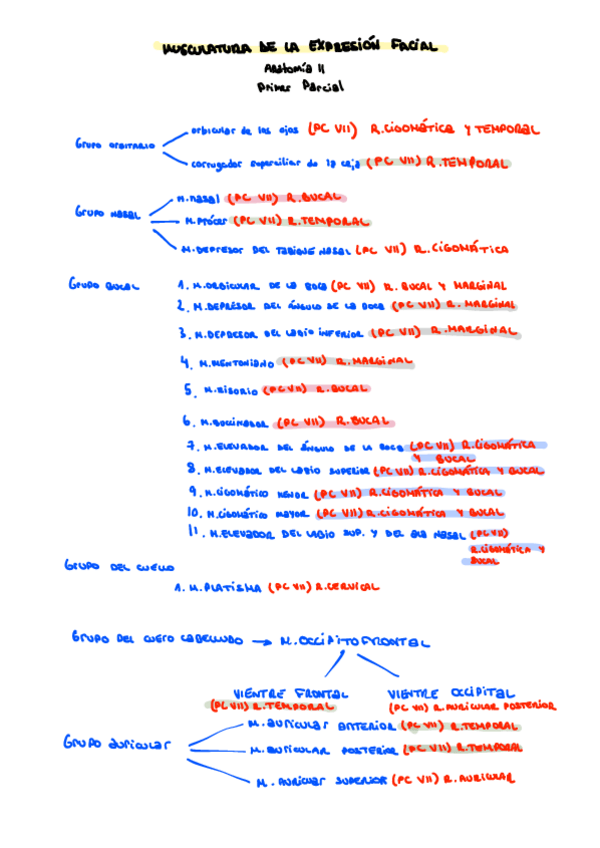 MUSCULATURA DE LA EXPRESIÓN FACIAL
Anatomía II
Primer Parcial
Grupo orbitario
orbicular de los ojos (PC VII) R. CIGOMÁTICA Y TEMPORAL
corrugador superciliar de la ceja (PC VII) R. TEMPORAL
Grupo NASAL
M. nasal (PC VII) R. BUCAL
M. Prócer (PC VII) R. TEMPORAL
M. DEPRESOR DEL TABIQUE NASAL (PC VII) R. CIGOMÁTICA
Grupo bucal
1. M. ORBICULAR DE LA BOCA (PC VII) R. BUCAL Y MARGINAL
2. M. DEPRESOR DEL ÁNGULO DE LA BOCA (PC VII) R. MARGINAL
3. M. DEPRESOR DEL LABIO INFERIOR (PC VII) R. MARGINAL
4. M. MENTONIANO (PC VII) R. MARGINAL
5. M. RISORIO (PC VII) R. BUCAL
6. M. BUCCINADOR (PC VII) R. BUCAL
7. M. ELEVADOR DEL ÁNGULO DE LA BOCA (PC VII) R. CIGOMÁTICA
Y BUCAL
8. M. ELEVADOR DEL LABIO SUPERIOR (PC VII) R. CIGOMÁTICA Y BUCAL
9. M. CIGOMÁTICO MENOR (PC VII) R. CIGOMÁTICA Y BUCAL
10. M. CIGOMÁTICO MAYOR (PC VII) R. CIGOMÁTICA Y BUCAL
11. M. ELEVADOR DEL LABIO SUP. Y DEL ALA NASAL (PC VII)
R. CIGOMÁTICA Y
BUCAL
GRUPO DEL CUELLO
1. M. PLATISMA (PC VII) R. CERVICAL
GRUPO DEL CUERO CABELLUDO → M. OCCIPITOFRONTAL
VIENTRE FRONTAL
(PC VII) R. TEMPORAL
VIENTRE OCCIPITAL
(PC VII) R. AURICULAR POSTERIOR
GRUPO AURICULAR
M. AURICULAR ANTERIOR (PC VII) R. TEMPORAL
M. AURICULAR POSTERIOR (PC VII) R. TEMPORAL
M. AURICULAR SUPERIOR (PC VII) R. AURICULAR